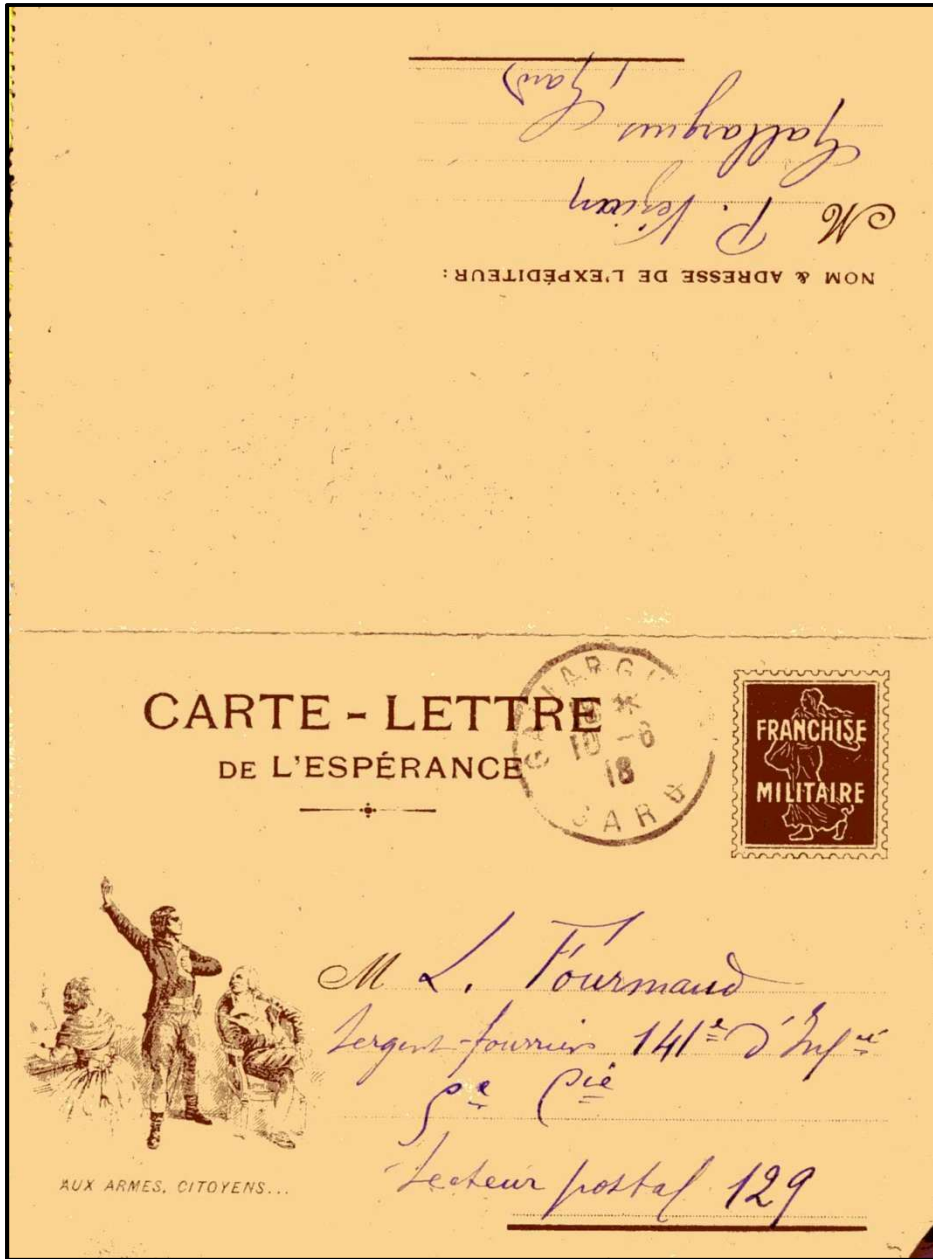 NOM & ADRESSE DE L'EXPÉDITEUR:
M P.
Gallargues
(Gard)
CARTE - LETTRE
DE L'ESPÉRANCE
18
GARD
FRANCHISE
MILITAIRE
M L. Fourmaud
Sergent-fourrier 141e d'Infie
Cie
Secteur postal 129
AUX ARMES, CITOYENS...